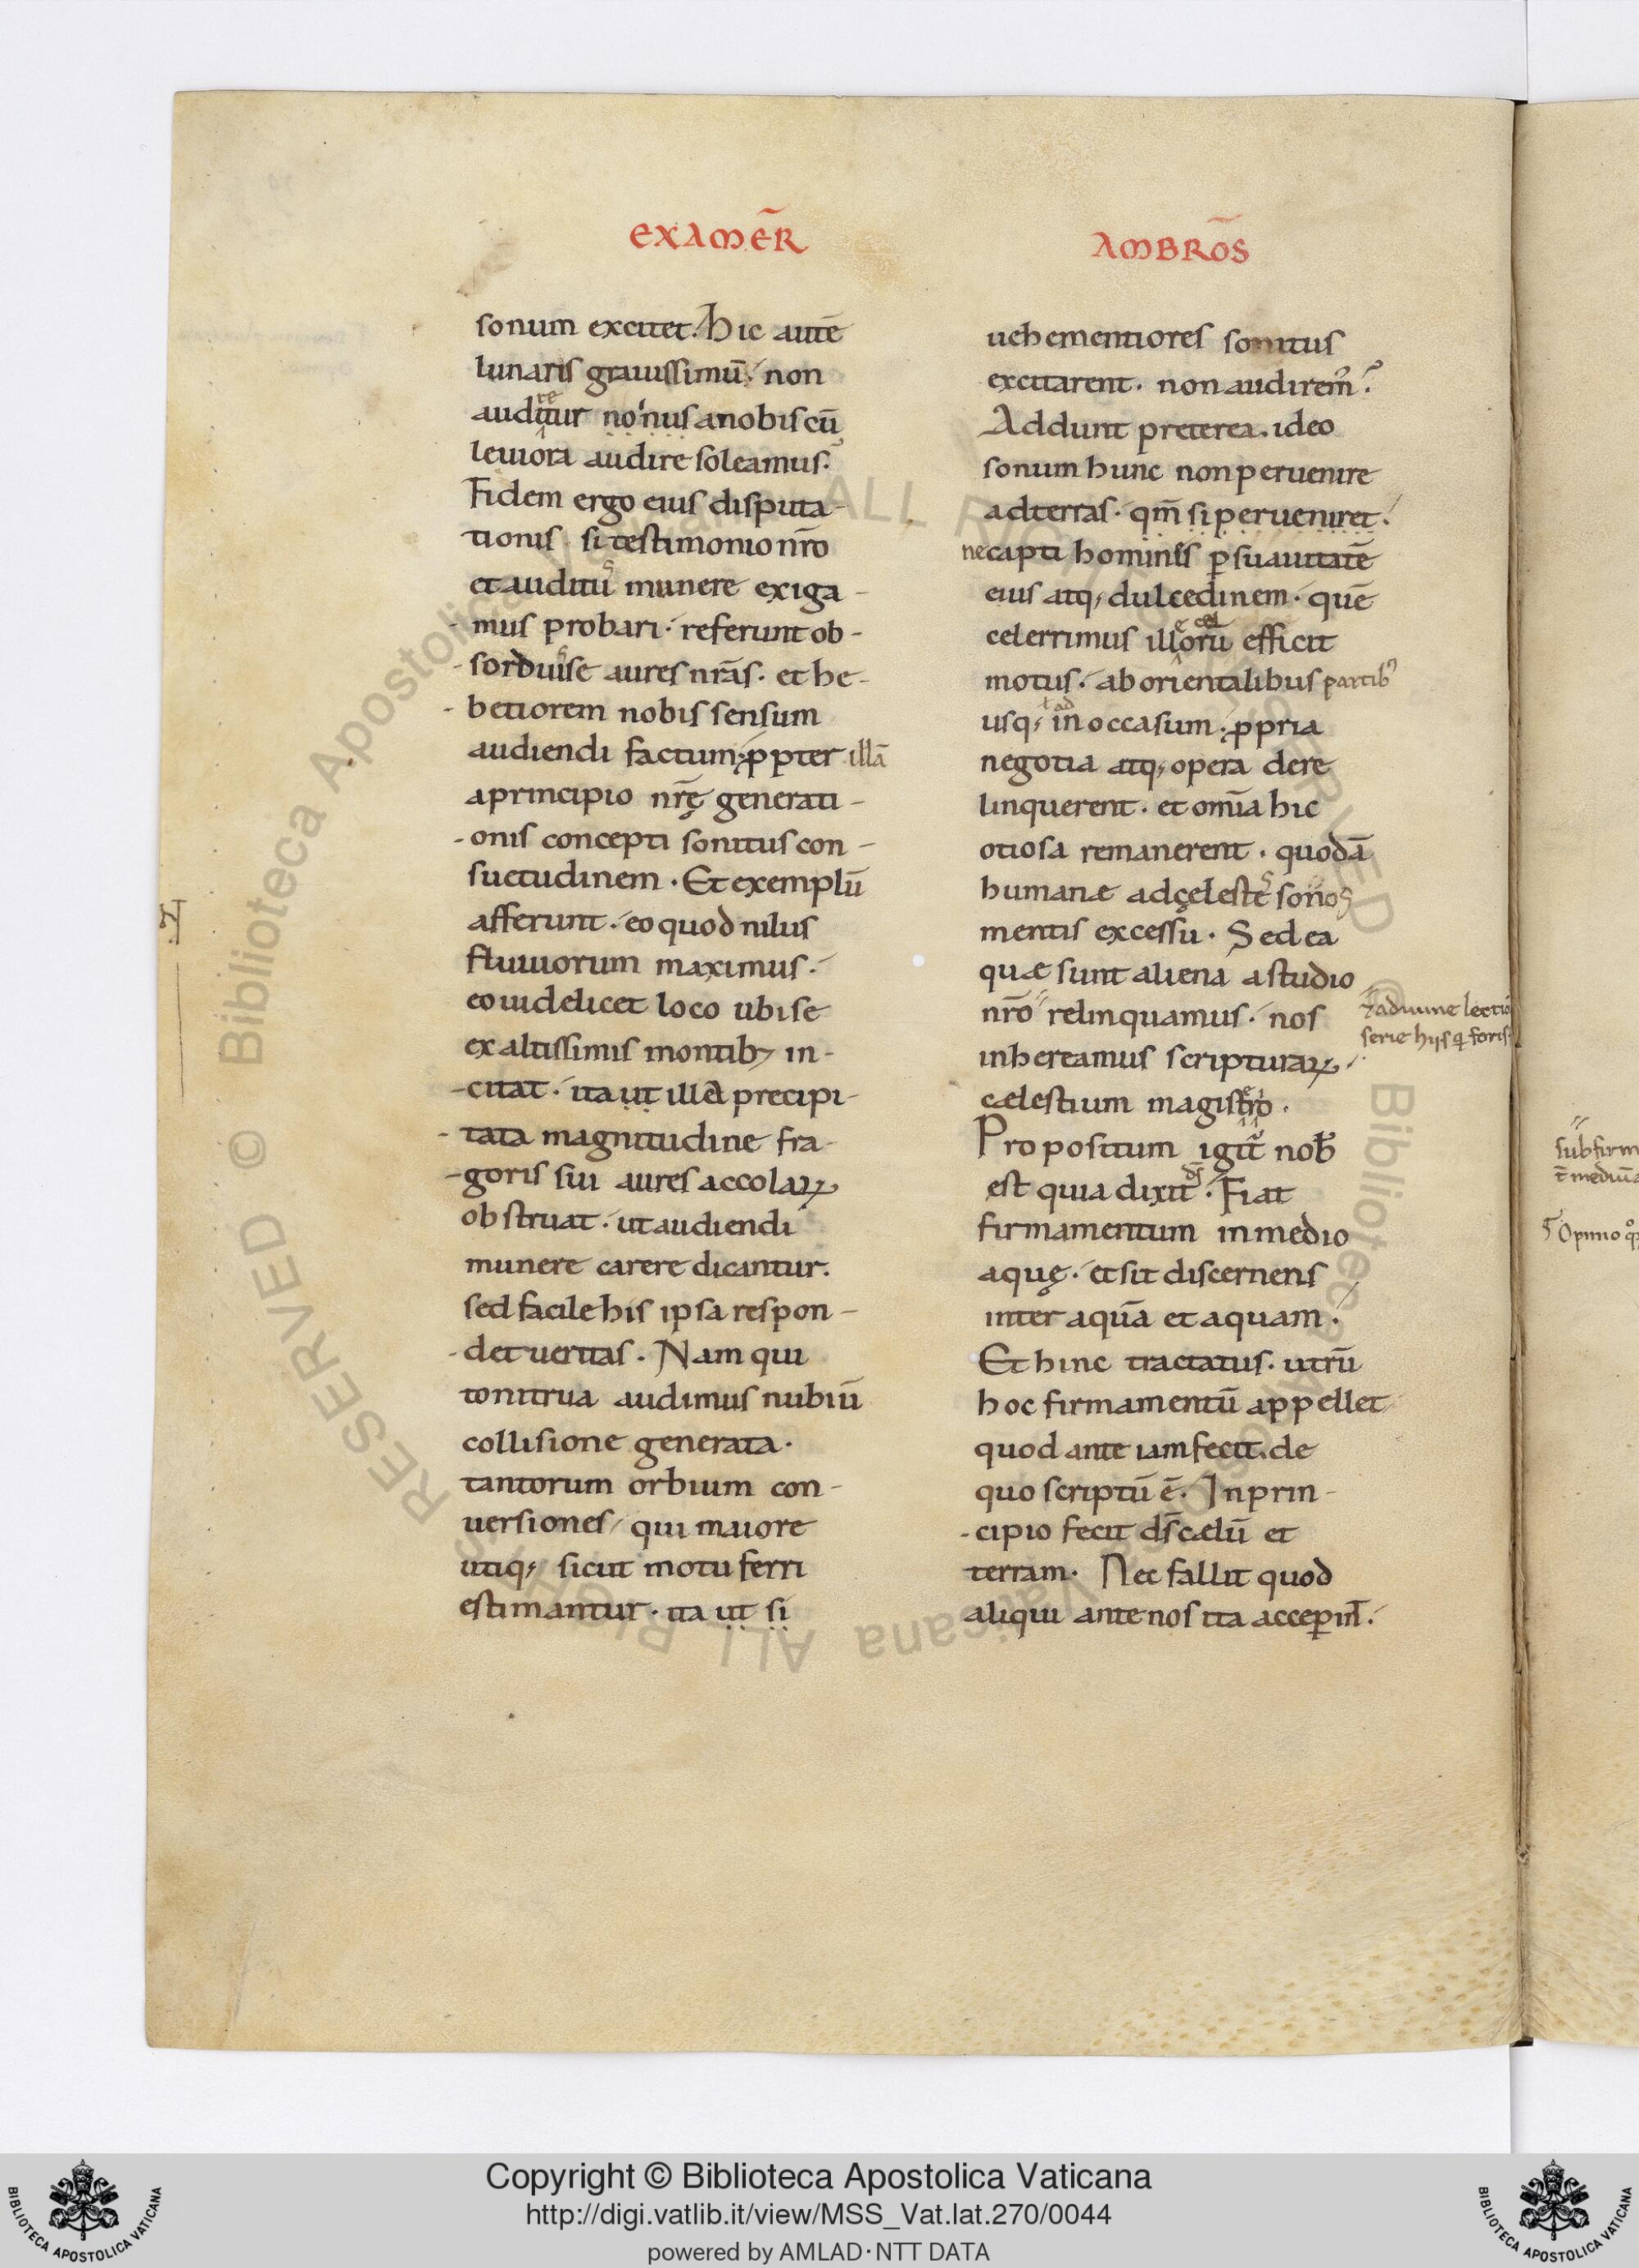 EXAMER̄
sonum excitet. hic autē
lunaris grauissimū. non
auditur no'nus anobis cū
te
leuiora audire soleamus.
Fidem ergo eius disputa-
tionis si testimonio nr̄o
et auditu munere exiga-
s
mus probari. referunt ob-
sorduise aures nr̄as. et he-
s
betiorem nobis sensum
audiendi factum. ꝓpter illā
aprincipio nr̄ę generati-
-onis concepti sonitus con-
suetudinem. Et exemplū
afferunt. eo quod nilus
fluuiorum maximus.
eo uidelicet loco ubi se
ex altissimis montibꝫ in-
-citat. ita ut illa precipi-
-tata magnitudine fra-
-goris sui aures accolaꝝ
obstruat. ut audiendi
munere carere dicantur.
sed facile his ipsa respon-
-det ueritas. Nam qui
tonitrua audimus nubiū
collisione generata.
tantorum orbium con-
uersiones, qui maiore
utiqꝫ sicut motu ferri
estimantur. ita ut si
AMBROS̄
uehementiores sonitus
excitarent. non audirem᷒?
Addunt preterea. ideo
sonum hunc non peruenire
adterras. qm̄ si perueniret.
ne capti hominis ꝑ suauitatē
eius atqꝫ dulcedinem. quē
celerrimus illorū efficit
ę cel
motus. ab orientalibus partib᷒
usqꝫ in occasum. ꝓpria
ł ad
negotia atqꝫ opera dere
linquerent. et omīa hic
otiosa remanerent. quodā
humanæ adçeleste sonos
s
mentis excessu. Sed ea
quæ sunt aliena a studio
nr̄o relinquamus. nos
inhereamus scripturaꝝ.
cælestium magistro.
Propositum igit᷒ nob̄
est quia dixit. Fiat
ds̄
firmamentum in medio
aquę. et sit discernens
inter aquā et aquam.
Et hinc tractatus. utrū
hoc firmamentū appellet
quod ante iam fecit. de
quo scriptū ē. In prin-
-cipio fecit ds̄ cælū et
terram. Nec fallit quod
aliqui ante nos ita acceperint̄.
⁊ adiuine lectio
serie hijs q̄ foris
sub firm
Opinio
RESERVED © Biblioteca Apostolica Vaticana ALL RIGHTS RESERVED © Biblioteca Apostolica Vaticana ALL RIGHTS
Copyright © Biblioteca Apostolica Vaticana
http://digi.vatlib.it/view/MSS_Vat.lat.270/0044
powered by AMLAD·NTT DATA
BIBLIOTECA APOSTOLICA VATICANA
BIBLIOTECA APOSTOLICA VATICANA